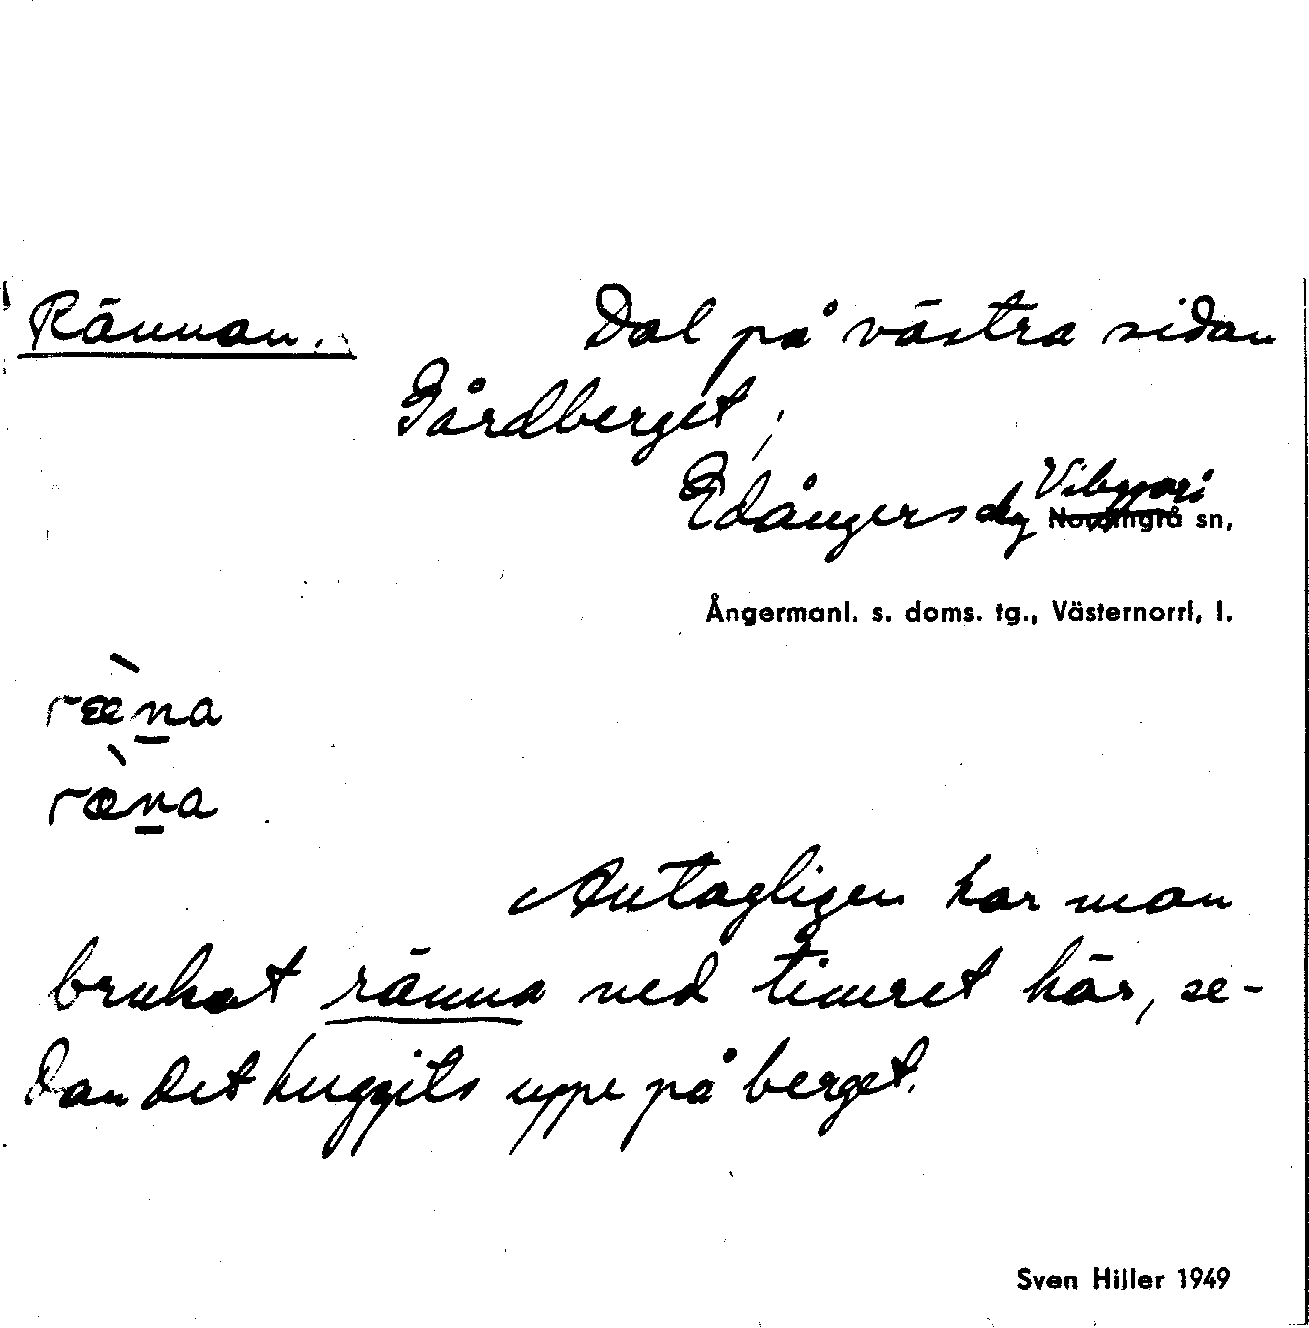 Rännan. Dal på västra sidan
Gårdberget,
Edångers by Vibyggerå
Nordingrå sn,
Ångermanl. s. doms. tg., Västernorrl, l.
ræ̀n̲a
rœ̀n̲a
Antagligen har man
brukat ränna ned timret här, se-
dan det huggits uppe på berget.
Sven Hiller 1949